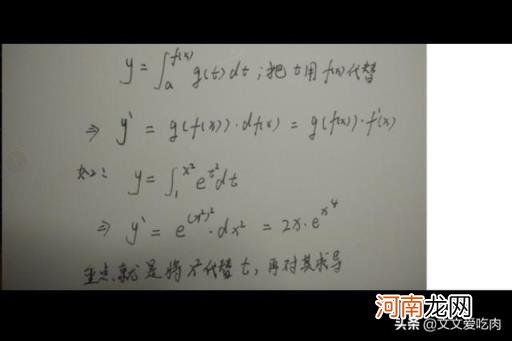 y = ∫ₐ^f(x) g(t) dt ; 把 t 用 f(x) 代替
⇒ y' = g(f(x)) · df(x) = g(f(x)) · f'(x)
如: y = ∫₁^x² e^t² dt
⇒ y' = e^(x²)² · dx² = 2x · e^x⁴
重点就是将 x² 代替 t, 再对其求导
河南龙网
头条 @文文爱吃肉